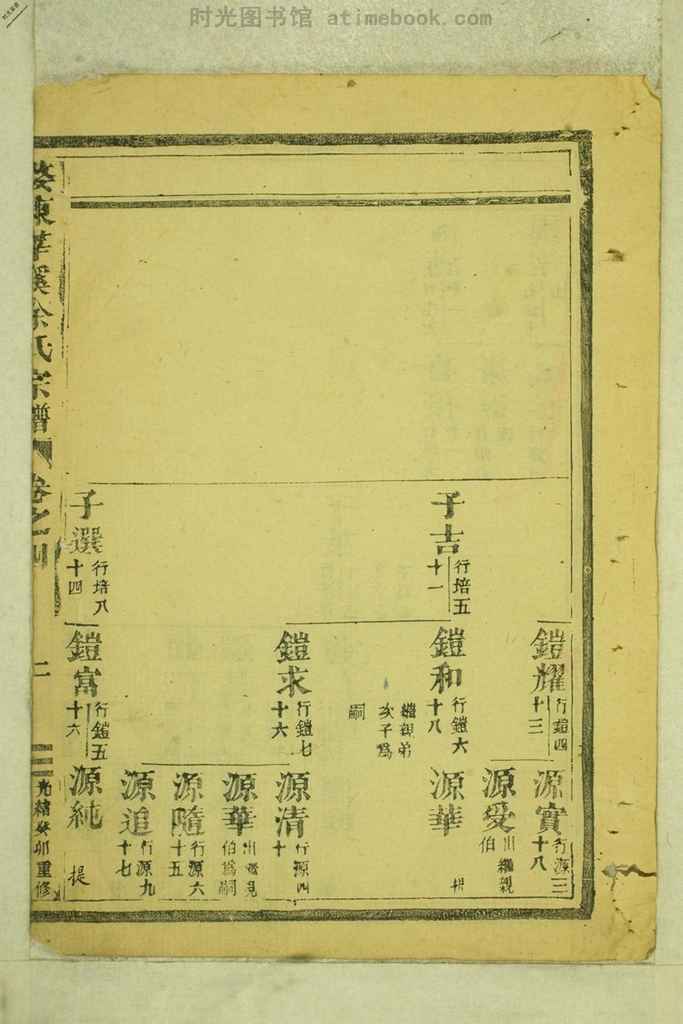 时光图书馆 atimebook.com
子吉
行培五
十一
子選
行培八
十四
鎧耀
行鎧四
十三
鎧和
行鎧六
十八
繼親弟
次子爲
嗣
鎧求
行鎧七
十六
鎧富
行鎧五
十六
源實
行源三
十八
源愛
出繼親
伯
源華
源清
行源四
十
源華
伯爲嗣
源隨
行源六
十五
源追
行源九
十七
源純
提
東華溪徐氏宗譜
卷之四
二
光緒癸卯重修